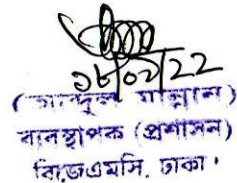 ১৮/০১/22
(আব্দুল মান্নান)
ব্যবস্থাপক (প্রশাসন)
বিজেএমসি, ঢাকা।